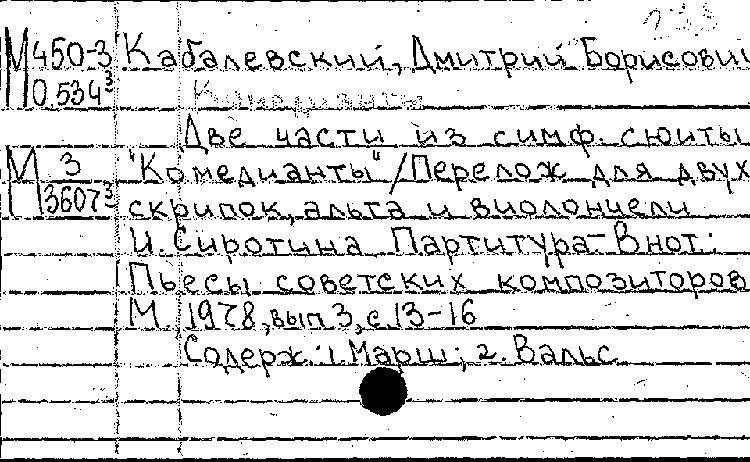 М450-3 Кабалевский, Дмитрий Борисович
0.534³
Комедианты
Две части из симф. сюиты
М 3 "Комедианты"/Перелож для двух
3607³ скрипок, альта и виолончели
И. Сиротина Партитура – В нот.:
Пьесы советских композиторов
М. 1978, вып 3, с.13-16
Содерж: 1. Марш; 2. Вальс